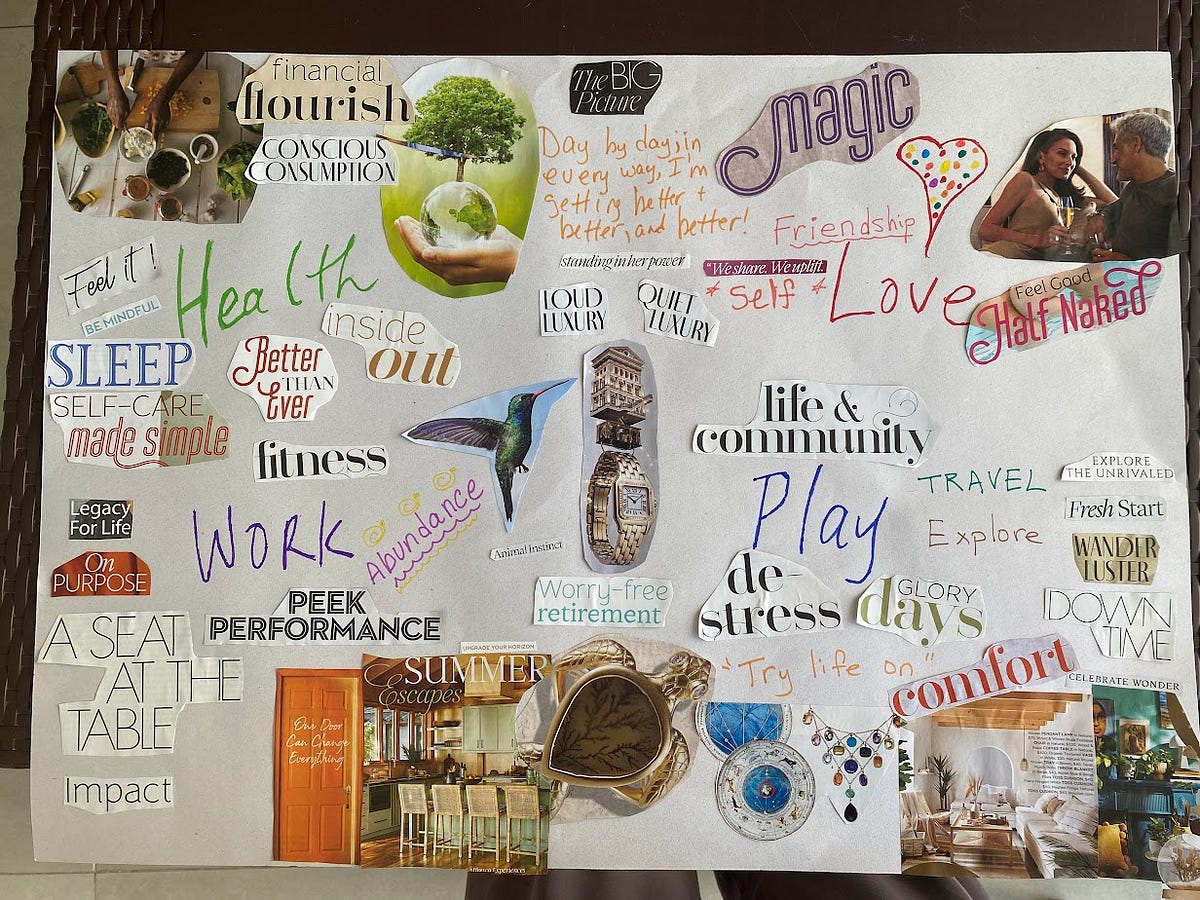 financial
flourish
CONSCIOUS
CONSUMPTION
The BIG
Picture
Day by day, in
every way, I'm
getting better +
better, and better!
magic
Friendship
standing in her power
"We share. We uplift.
LOUD
LUXURY
QUIET
LUXURY
* Self * Love
Feel Good
Half Naked
Feel it!
BE MINDFUL
Health
SLEEP
Better
THAN
Ever
inside
out
SELF-CARE
made simple
fitness
life &
community
Legacy
For Life
On
PURPOSE
Work
Abundance
Animal instinct
Play
TRAVEL
Explore
EXPLORE
THE UNRIVALED
Fresh Start
WANDER
LUSTER
PEEK
PERFORMANCE
Worry-free
retirement
de-
stress
GLORY
days
DOWN
TIME
A SEAT
AT THE
TABLE
Impact
UPGRADE YOUR HORIZON
SUMMER
Escapes
One Door
Can Change
Everything
"Try life on"
comfort
CELEBRATE WONDER